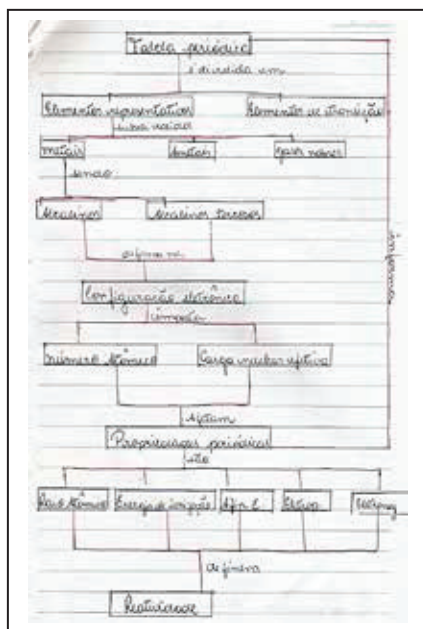 Tabela periódica
é dividida em
Elementos representativos
Elementos de transição
metais
Ametais
gases nobres
sendo
Alcalinos
Alcalinos terrosos
Configuração eletrônica
número atômico
Carga nuclear efetiva
afetam
Propriedades periódicas
são
Raio atômico
Energia de ionização
Afin. E
definem
Reatividade